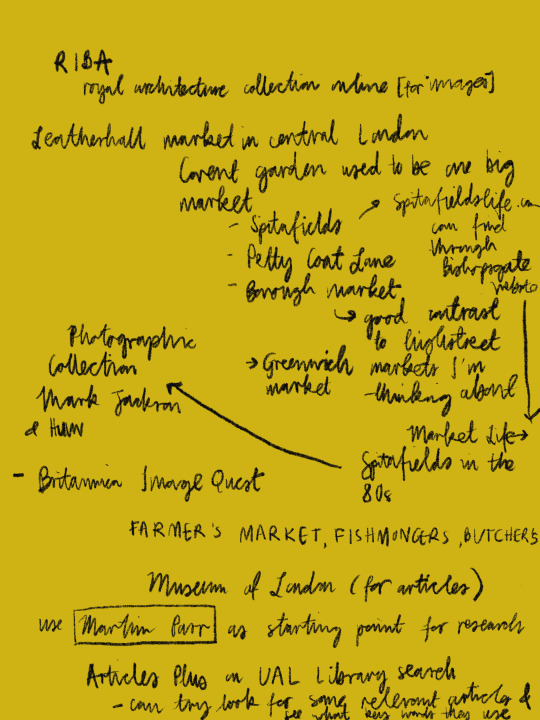 RIBA
royal architecture collection online [for images]
Leatherhall market in central London
Covent garden used to be one big
market
- Spitafields
- Petty Coat Lane
- Borough market
Spitafieldslife.com
can find
through
Bishopsgate
website
good contrast
to highstreet
markets I'm
thinking about
→ Greenwich
market
Photographic
Collection
Mark Jackson
&
Market Life →
Spitafields in the
80s
- Britannica Image Quest
FARMER'S MARKET, FISHMONGERS, BUTCHERS
Museum of London (for articles)
use Martin Parr as starting point for research
Articles Plus on UAL Library search
- can try look for some relevant articles &
see what key words they use